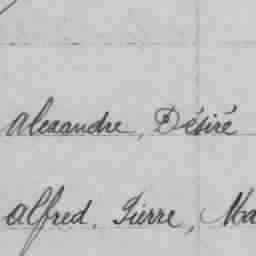 Alexandre, Désiré
Alfred, Pierre, Ma